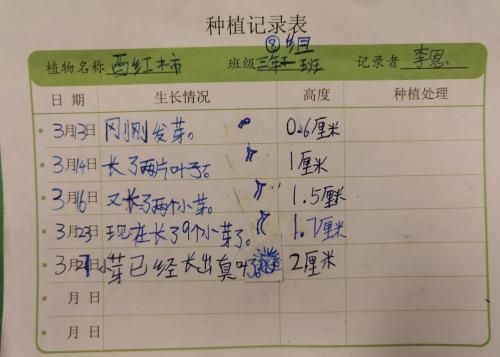 种植记录表
⑧组
植物名称 西红柿 班级 三年 班 记录者 李恩
日期 生长情况 高度 种植处理
3月13日 刚刚发芽。 0.6厘米
3月14日 长了两片叶子。 1厘米
3月16日 又长了两个小芽。 1.5厘米
3月23日 现在长了9个小芽了。 1.7厘米
3月 日 小芽已经长出真叶 2厘米
月 日
月 日